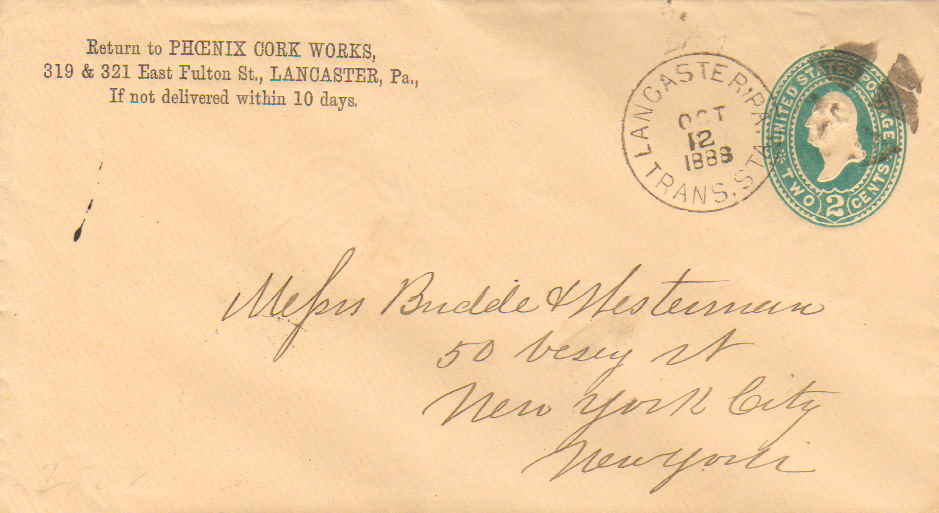 Return to PHŒNIX CORK WORKS,
319 & 321 East Fulton St., LANCASTER, Pa.,
If not delivered within 10 days.
LANCASTER, PA.
OCT
12
1888
TRANS. STA.
UNITED STATES POSTAGE
TWO 2 CENTS
Messrs Budde & Westerman
50 vesey st
New York City
New York